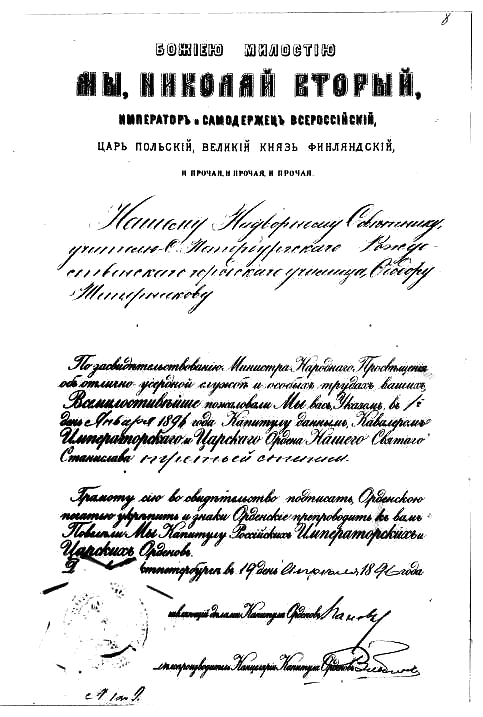 8
БОЖІЕЮ МИЛОСТІЮ
МЫ, НИКОЛАЙ ВТОРЫЙ,
ИМПЕРАТОРЪ и САМОДЕРЖЕЦЪ ВСЕРОССІЙСКІЙ,
ЦАРЬ ПОЛЬСКІЙ, ВЕЛИКІЙ КНЯЗЬ ФИНЛЯНДСКІЙ,
И ПРОЧАЯ, И ПРОЧАЯ, И ПРОЧАЯ.
Нашему Надворному Совѣтнику,
учителю С. Петербургскаго Рожде-
ственскаго городскаго училища, Ѳедору
По засвидѣтельствованію Министра Народнаго Просвѣщенія
объ отлично усердной службѣ и особыхъ трудахъ вашихъ,
Всемилостивѣйше пожаловали Мы васъ, Указомъ, въ 1й
день Января 1896 года Капитулу даннымъ, Кавалеромъ
Императорскаго и Царскаго Ордена Нашего Святаго
Станислава третьей степени.
Грамоту сію во свидѣтельство подписать, Орденскою
печатью укрѣпить и знаки Орденскіе препроводить къ вамъ
Повелѣли Мы Капитулу Россійскихъ Императорскихъ и
Царскихъ Орденовъ.
въ 19 день Апрѣля 1896 года
дѣлами Капитула Орденовъ
производитель Канцеляріи Капитула Орденовъ